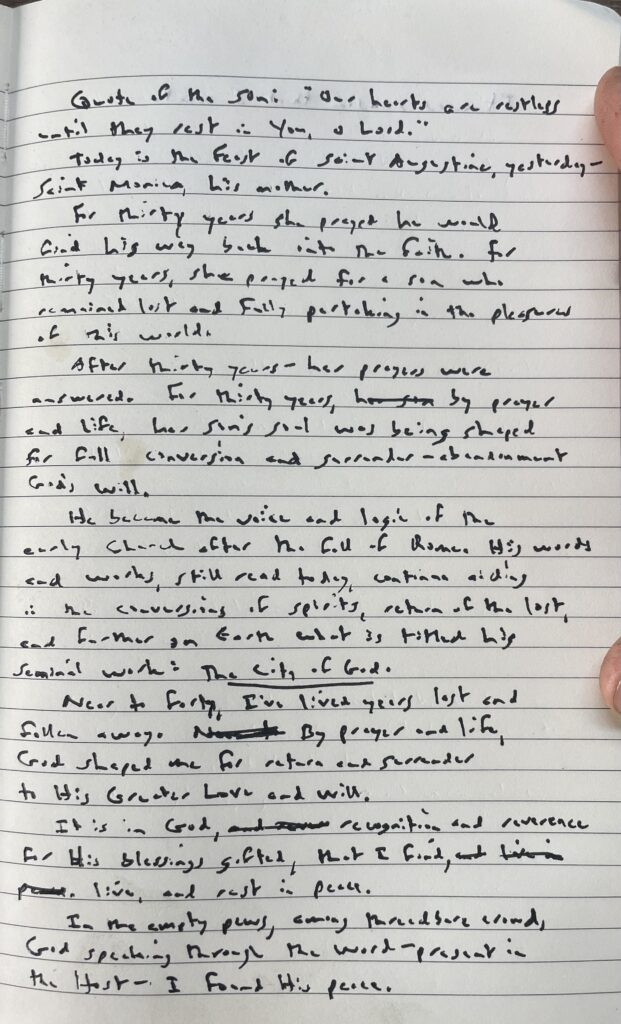 Quote of the Son: "Our hearts are restless
until they rest in You, O Lord."
Today is the Feast of Saint Augustine, yesterday-
Saint Monica, his mother.
For thirty years she prayed he would
find his way back into the faith. For
thirty years, she prayed for a son who
remained lost and fully partaking in the pleasures
of this world.
After thirty years- her prayers were
answered. For thirty years, her son by prayer
and life, her son's soul was being shaped
for full conversion and surrender-abandonment
God's will.
He became the voice and logic of the
early Church after the fall of Rome. His words
and works, still read today, continue aiding
in the conversions of spirits, return of the lost,
and further on Earth what is titled his
seminal work: The City of God.
Near to forty, I've lived years lost and
fallen away. By prayer and life,
God shaped me for return and surrender
to His Greater Love and Will.
It is in God, recognition and reverence
for His blessings gifted, that I find, and live in
peace. live, and rest in peace.
In the empty pews, among threadbare crowd,
God speaking through the Word-present in
the Host- I found His peace.